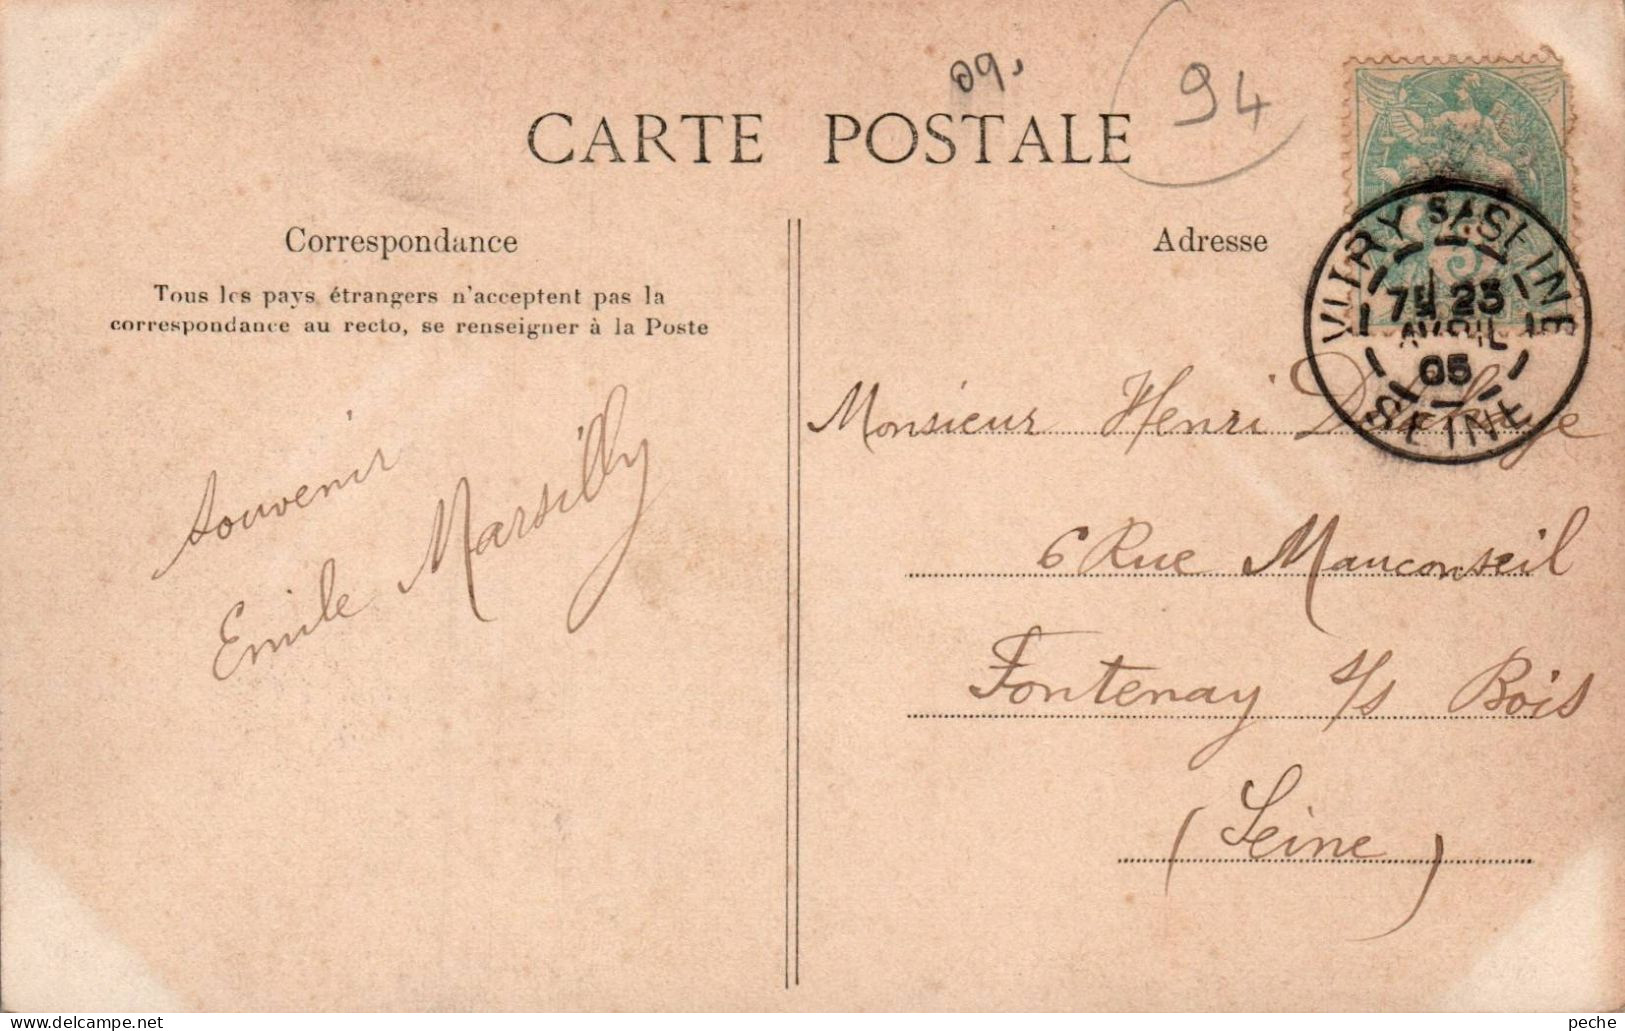 09,
94
CARTE POSTALE
Correspondance
Tous les pays étrangers n'acceptent pas la
correspondance au recto, se renseigner à la Poste
Souvenir
Emile Marsilly
Adresse
VITRY S/ SEINE
7E 23
AVRIL
05
SEINE
Monsieur Henri
6 Rue Mauconseil
Fontenay s/s Bois
(Seine)
delcampe.net
peche